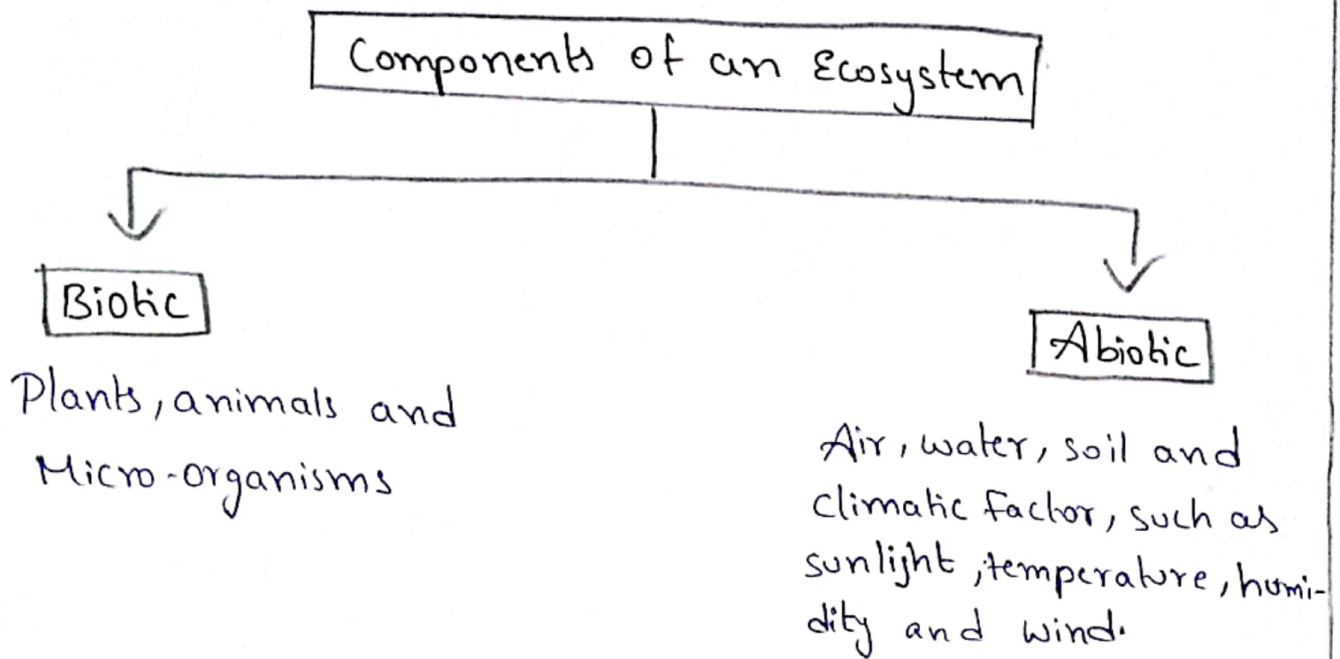 Components of an Ecosystem
Biotic
Abiotic
Plants, animals and
Micro-organisms
Air, water, soil and
climatic factor, such as
sunlight, temperature, humi-
dity and wind.